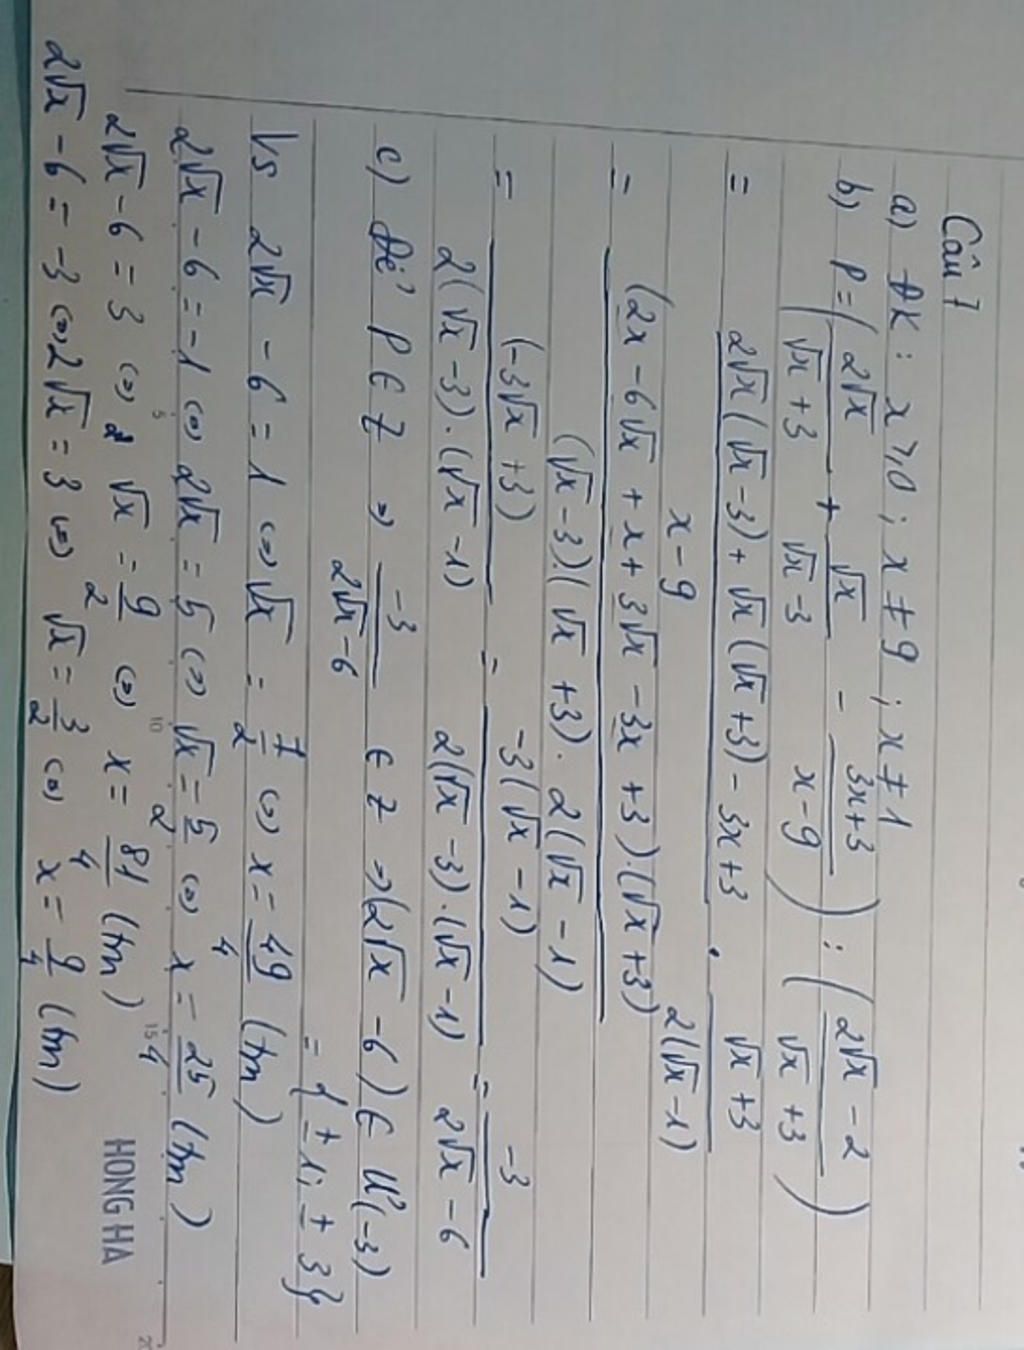 Câu 7
a) ĐK: x ⩾ 0; x ≠ 9; x ≠ 1
b) P = (2√x/(√x + 3) + √x/(√x - 3) - (3x + 3)/(x - 9)) : ((2√x - 2)/(√x + 3))
= (2√x(√x - 3) + √x(√x + 3) - 3x + 3)/(x - 9) . (√x + 3)/(2(√x - 1))
= (2x - 6√x + x + 3√x - 3x + 3).(√x + 3)/((√x - 3)(√x + 3). 2(√x - 1))
= (-3√x + 3)/(2(√x - 3).(√x - 1)) = -3(√x - 1)/(2(√x - 3).(√x - 1)) = -3/(2√x - 6)
c) Để P ∈ Z ⇒ -3/(2√x - 6) ∈ Z ⇒ (2√x - 6) ∈ Ư(-3)
= { ± 1; ± 3}
Vs 2√x - 6 = 1 (=) √x = 7/2 (=) x = 49/4 (tm)
2√x - 6 = -1 (=) 2√x = 5 (=) √x = 5/2 (=) x = 25/4 (tm)
2√x - 6 = 3 (=) √x = 9/2 (=) x = 81/4 (tm)
2√x - 6 = -3 (=) 2√x = 3 (=) √x = 3/2 (=) x = 9/4 (tm)
5 10 15 20
HONG HA